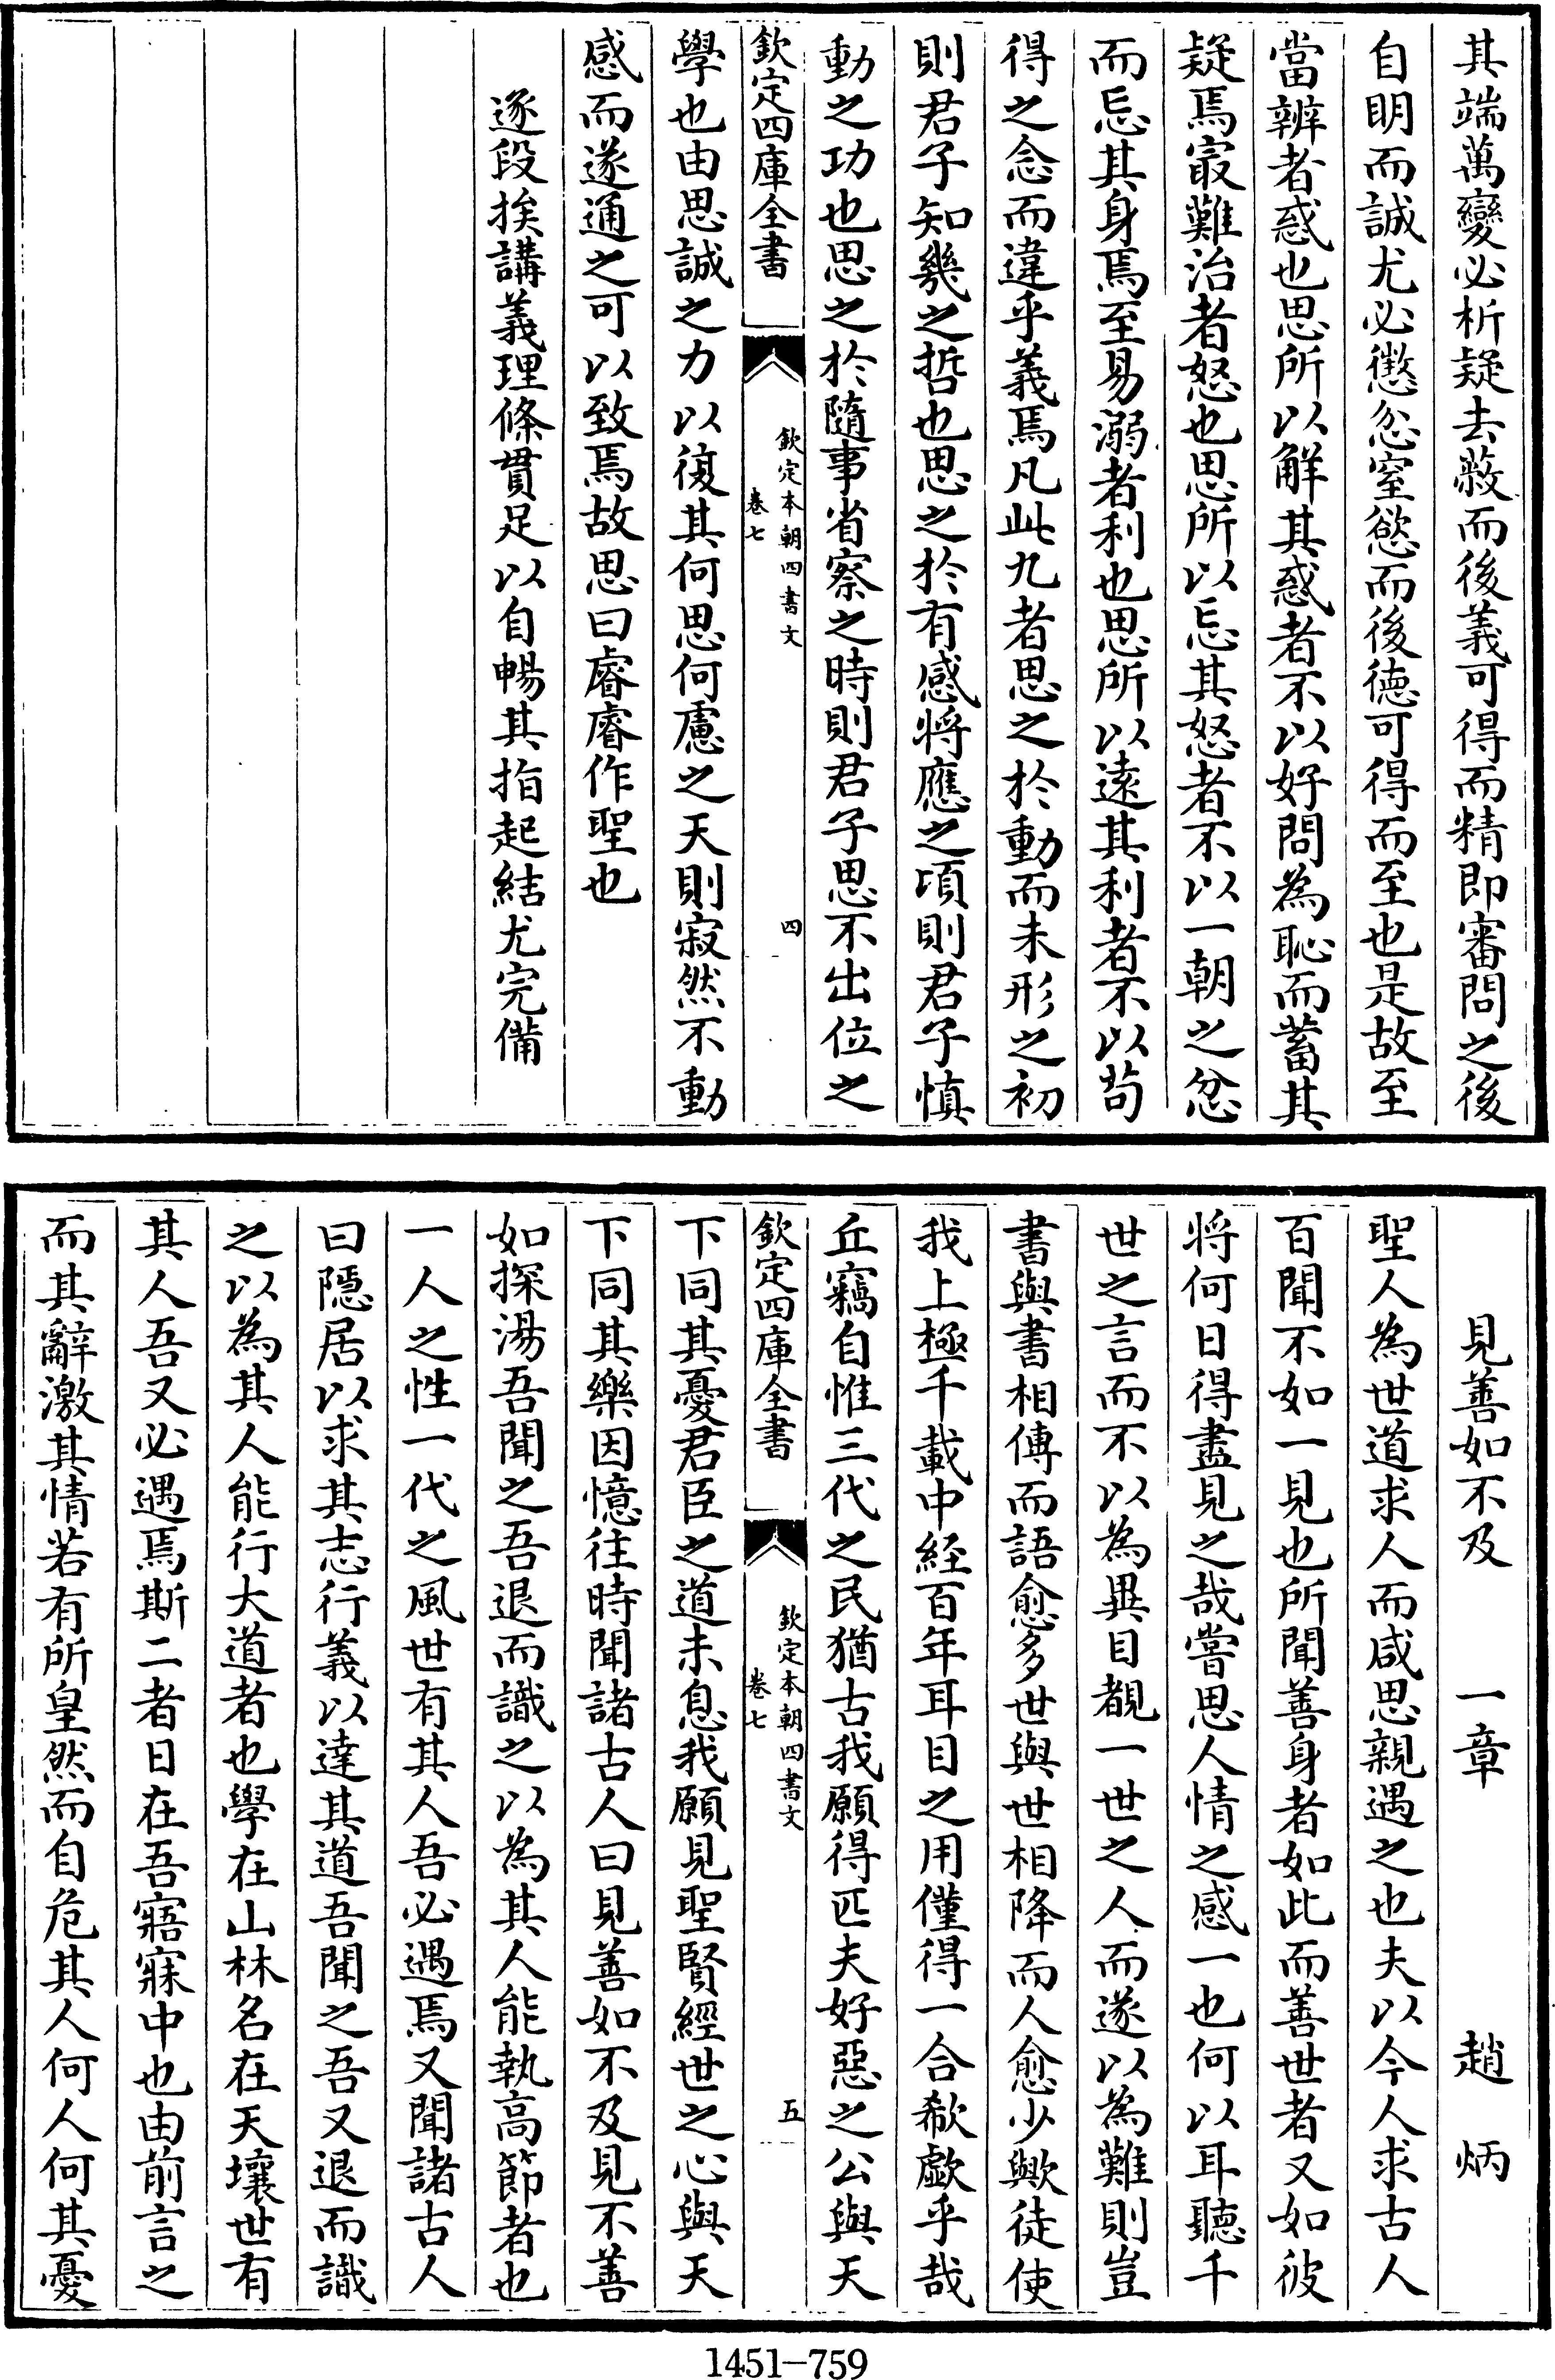 其端萬變必析疑去蔽而後義可得而精即審問之後
自明而誠尤必懲忿窒慾而後德可得而至也是故至
當辨者惑也思所以解其惑者不以好問為恥而蓄其
疑焉㝡難治者怒也思所以忘其怒者不以一朝之忿
而忘其身焉至易溺者利也思所以遠其利者不以苟
得之念而違乎義焉凡此九者思之於動而未形之初
則君子知幾之哲也思之於有感將應之頃則君子慎
動之功也思之於隨事省察之時則君子思不出位之
欽定四庫全書
欽定本朝四書文
卷七
四
學也由思誠之力以復其何思何慮之天則寂然不動
感而遂通之可以致焉故思曰睿睿作聖也
逐段挨講義理條貫足以自暢其指起結尤完備
見善如不及 一章 趙炳
聖人為世道求人而咸思親遇之也夫以今人求古人
百聞不如一見也所聞善身者如此而善世者又如彼
將何日得盡見之哉嘗思人情之感一也何以耳聽千
世之言而不以為異目覩一世之人而遂以為難則豈
書與書相傳而語愈多世與世相降而人愈少歟徒使
我上極千載中經百年耳目之用僅得一合欷歔乎哉
丘竊自惟三代之民猶古我願得匹夫好惡之公與天
欽定四庫全書
欽定本朝四書文
卷七
五
下同其憂君臣之道未息我願見聖賢經世之心與天
下同其樂因憶往時聞諸古人曰見善如不及見不善
如探湯吾聞之吾退而識之以為其人能執高節者也
一人之性一代之風世有其人吾必遇焉又聞諸古人
曰隱居以求其志行義以達其道吾聞之吾又退而識
之以為其人能行大道者也學在山林名在天壤世有
其人吾又必遇焉斯二者日在吾寤寐中也由前言之
而其辭激其情若有所皇然而自危其人何人何其憂
1451-759